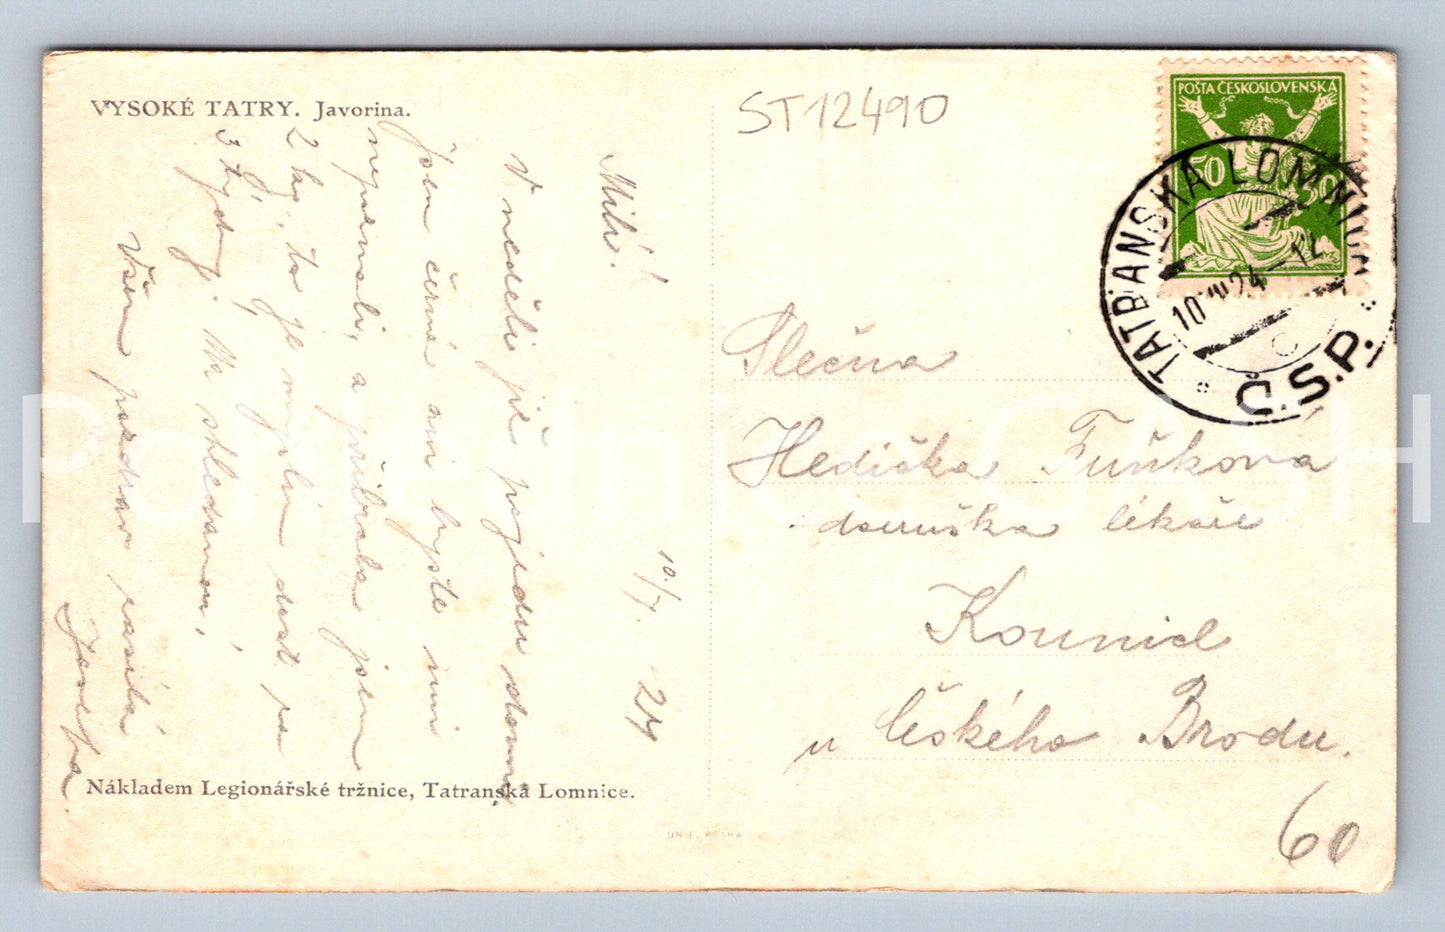 VYSOKÉ TATRY. Javorina.
ST12490
POŠTA ČESKOSLOVENSKÁ
50 50
TATRANSKÁ LOMNICA
10.VII.24-12
Č.S.P.
C
Milá!
V neděli již pojedu domů,
jsem černá ani byste mi
nepoznali, a přibrala jsem
2 kg, to je myslím dost za
3 týdny. Na shledanou!
Všem pozdrav zasílá
10./7. 24
Slečna
Hedička Fuňková
dceruška lékaře
Kounic
u Českého Brodu.
Nákladem Legionářské tržnice, Tatranská Lomnice.
UNIE, PRAHA
60